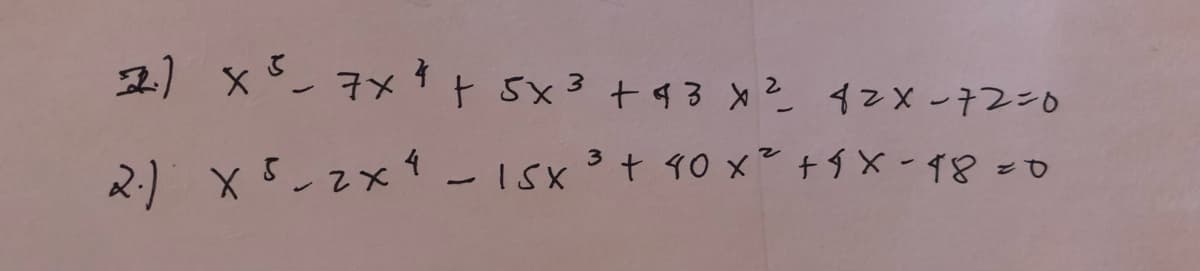 1.) x⁵ - 7x⁴ + 5x³ + 43x² - 42x - 72 = 0
2.) x⁵ - 2x⁴ - 15x³ + 40x² + 4x - 48 = 0